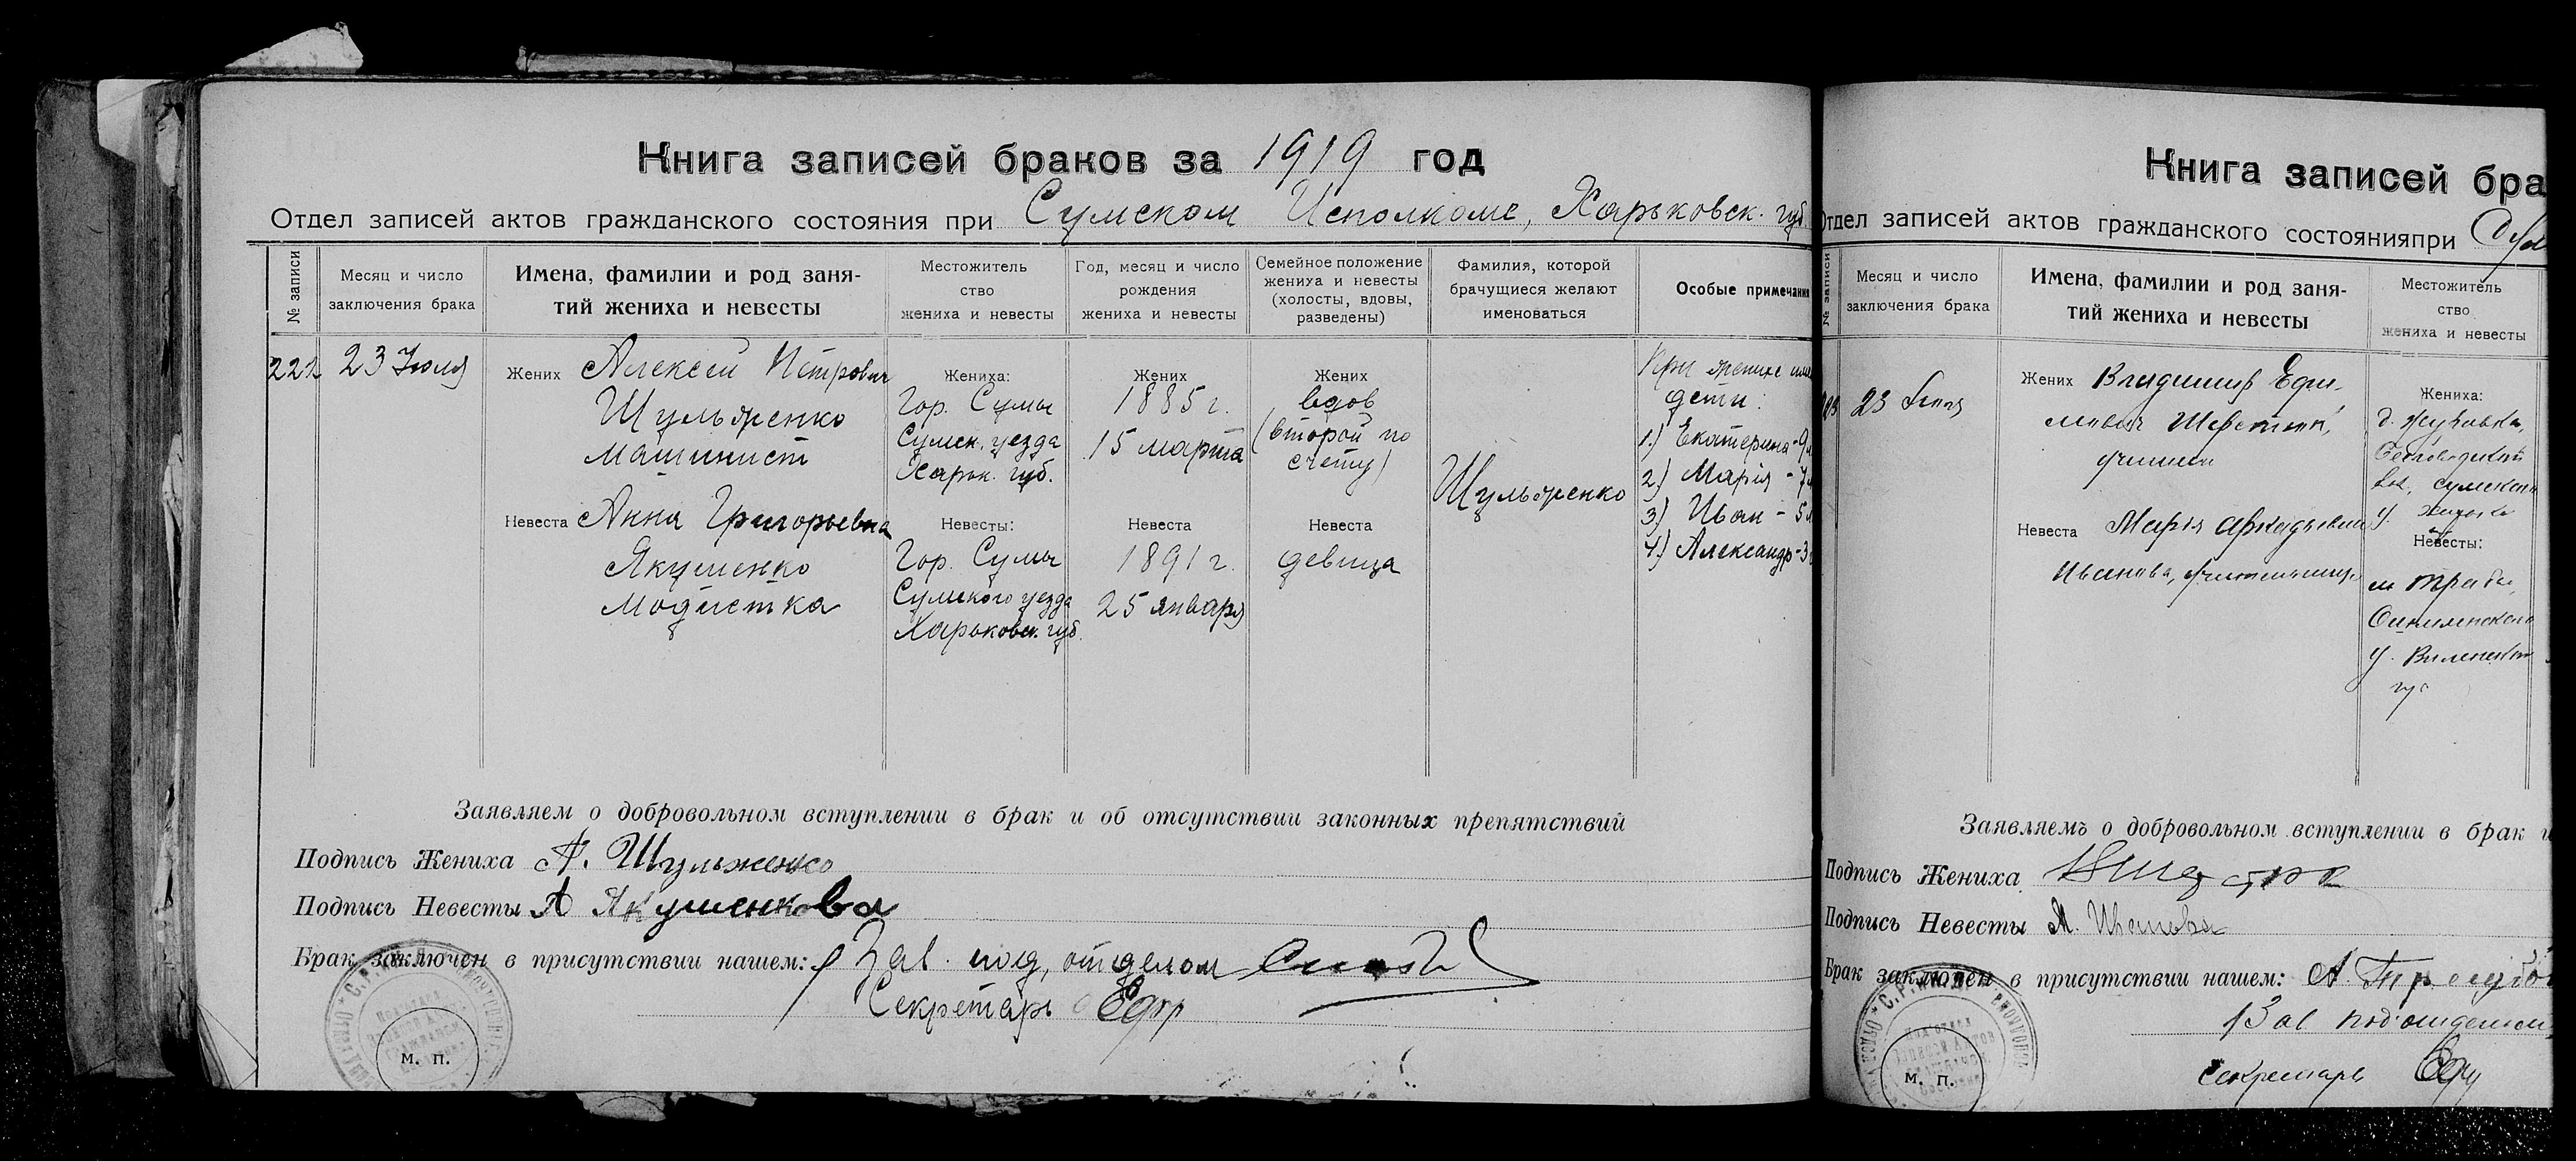 Книга записей браков за 1919 год
Отдел записей актов гражданского состояния при Сумском Исполкоме, Харьковск. губ
№ записи
Месяц и число
заключения брака
Имена, фамилии и род заня-
тий жениха и невесты
Местожитель
ство
жениха и невесты
Год, месяц и число
рождения
жениха и невесты
Семейное положение
жениха и невесты
(холосты, вдовы,
разведены)
Фамилия, которой
брачущиеся желают
именоваться
Особые примечания
222
23 Июля
Жених Алексей Петрович
Шульженко
Машинист
Невеста Анна Григорьевна
Якушенко
Модистка
Жениха:
Гор. Сумы
Сумск. уезда
Харьк. губ.
Невесты:
Гор. Сумы
Сумского уезда
Харьковск. губ.
Жених
1885 г.
15 марта
Невеста
1891 г.
25 января
Жених
вдов
(второй по
счету)
Невеста
девица
Шульженко
При женихе
дети:
1.) Екатерина - 9
2.) Мария - 7
3.) Иван - 5
4.) Александр - 3
Заявляем о добровольном вступлении в брак и об отсутствии законных препятствий
Подпись Жениха А. Шульженко
Подпись Невесты А Якушенкова
Брак заключен в присутствии нашем: Зав. под, отделом
Секретарь
М. П.
Книга записей бра
Отдел записей актов гражданского состоянияпри Сум
№ записи
Месяц и число
заключения брака
Имена, фамилии и род заня-
тий жениха и невесты
Местожитель
ство
жениха и невесты
23 Июля
Жених Владимир Ефи-
мович
Невеста Мария Аркадьевна
Иванова, учительница
Жениха:
Сумского
Невесты:
у. Виленской
губ
Заявляемъ о добровольном вступлении в брак и
Подпись Жениха
Подпись Невесты М. Иванова
Брак заключен в присутствии нашем: А.
Зав подотделом
секретарь
М. П.